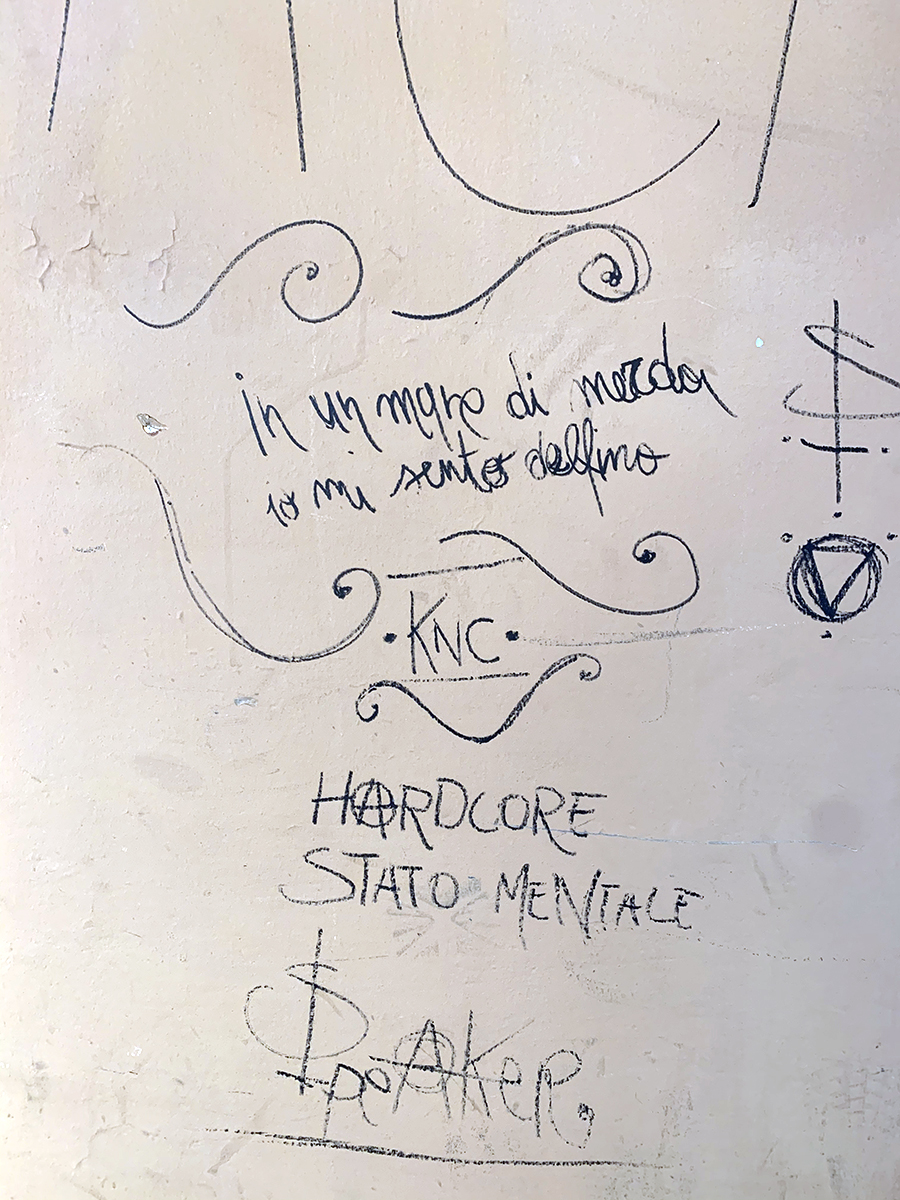 in un mare di merda
io mi sento delfino
KNC
HARDCORE
STATO MENTALE
$peAKeR